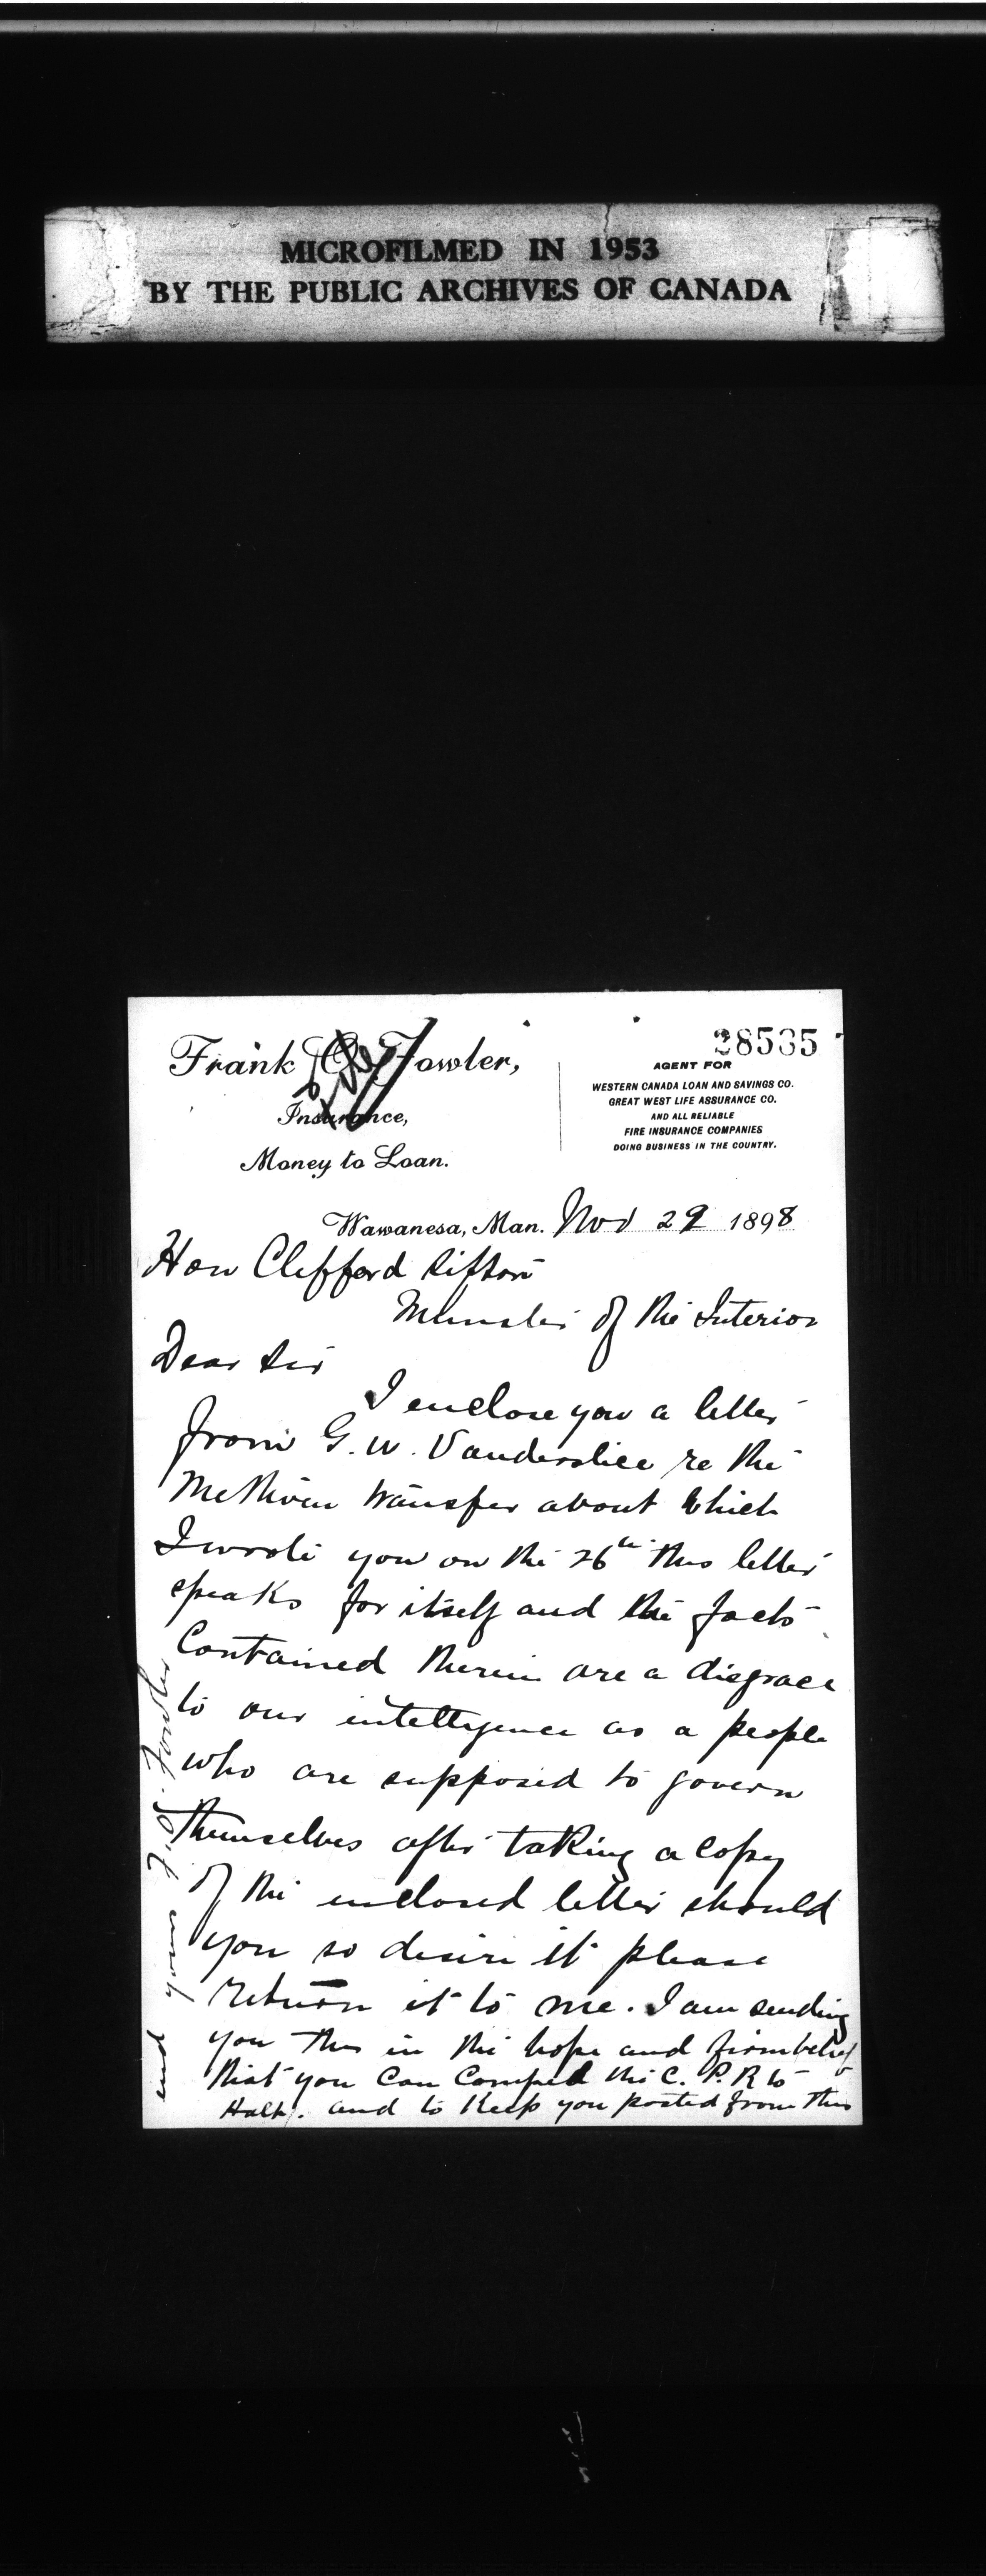 MICROFILMED IN 1953
BY THE PUBLIC ARCHIVES OF CANADA
28535
Frank O. Fowler,
Insurance,
Money to Loan.
AGENT FOR
WESTERN CANADA LOAN AND SAVINGS CO.
GREAT WEST LIFE ASSURANCE CO.
AND ALL RELIABLE
FIRE INSURANCE COMPANIES
DOING BUSINESS IN THE COUNTRY.
Wawanesa, Man. Nov 29 1898
Hon Clifford Sifton
Minister of the Interior
Dear Sir
I enclose you a letter
from G. W. Vanderslice re the
transfer about which
I wrote you on the 26th this letter
speaks for itself and the facts
Contained therein are a disgrace
to our intelligence as a people
who are supposed to govern
themselves after taking a Copy
of the enclosed letter should
you so desire it please
return it to me. I am sending
you this in the hope and firm belief
that you can Compel the C. P. R to
Halt. and to Keep you posted from this
end yours F. O. Fowler